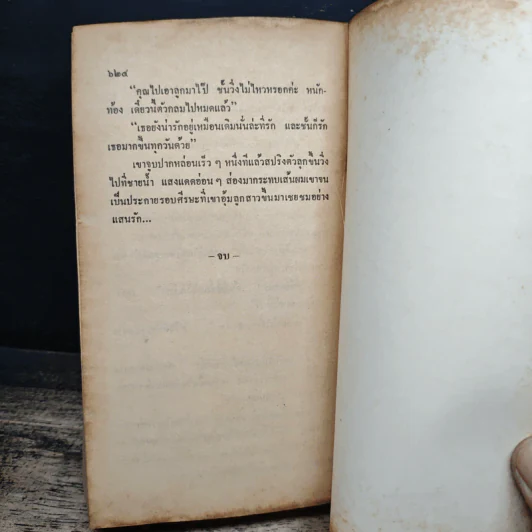 ๖๒๔
“คุณไปเอาลูกมาไว้ป๊ ชั้นวิ่งไม่ไหวหรอกค่ะ หนัก-
ท้อง เดี๋ยวนี้ตัวกลมไปหมดแล้ว”
“เธอยังน่ารักอยู่เหมือนเดิมนั่นล่ะที่รัก และชั้นก็รัก
เธอมากขึ้นทุกวันด้วย”
เขาจูบปากหล่อนเร็ว ๆ หนึ่งทีแล้วสปริงตัวลุกขึ้นวิ่ง
ไปที่ชายน้ำ แสงแดดอ่อน ๆ ส่องมากระทบเส้นผมเขาจน
เป็นประกายรอบศีรษะที่เขาอุ้มลูกสาวขึ้นมาเชยชมอย่าง
แสนรัก...
– จบ –